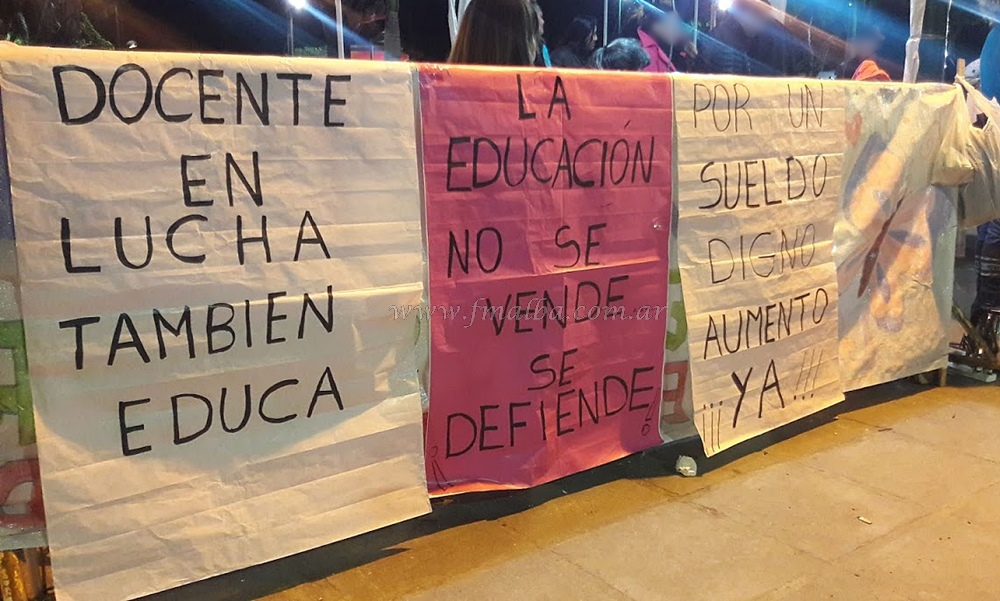 DOCENTE
EN
LUCHA
TAMBIEN
EDUCA
LA
EDUCACIÓN
NO SE
VENDE
SE
¡DEFIENDE!
POR UN
SUELDO
DIGNO
AUMENTO
¡¡¡YA!!!
www.fmalba.com.ar